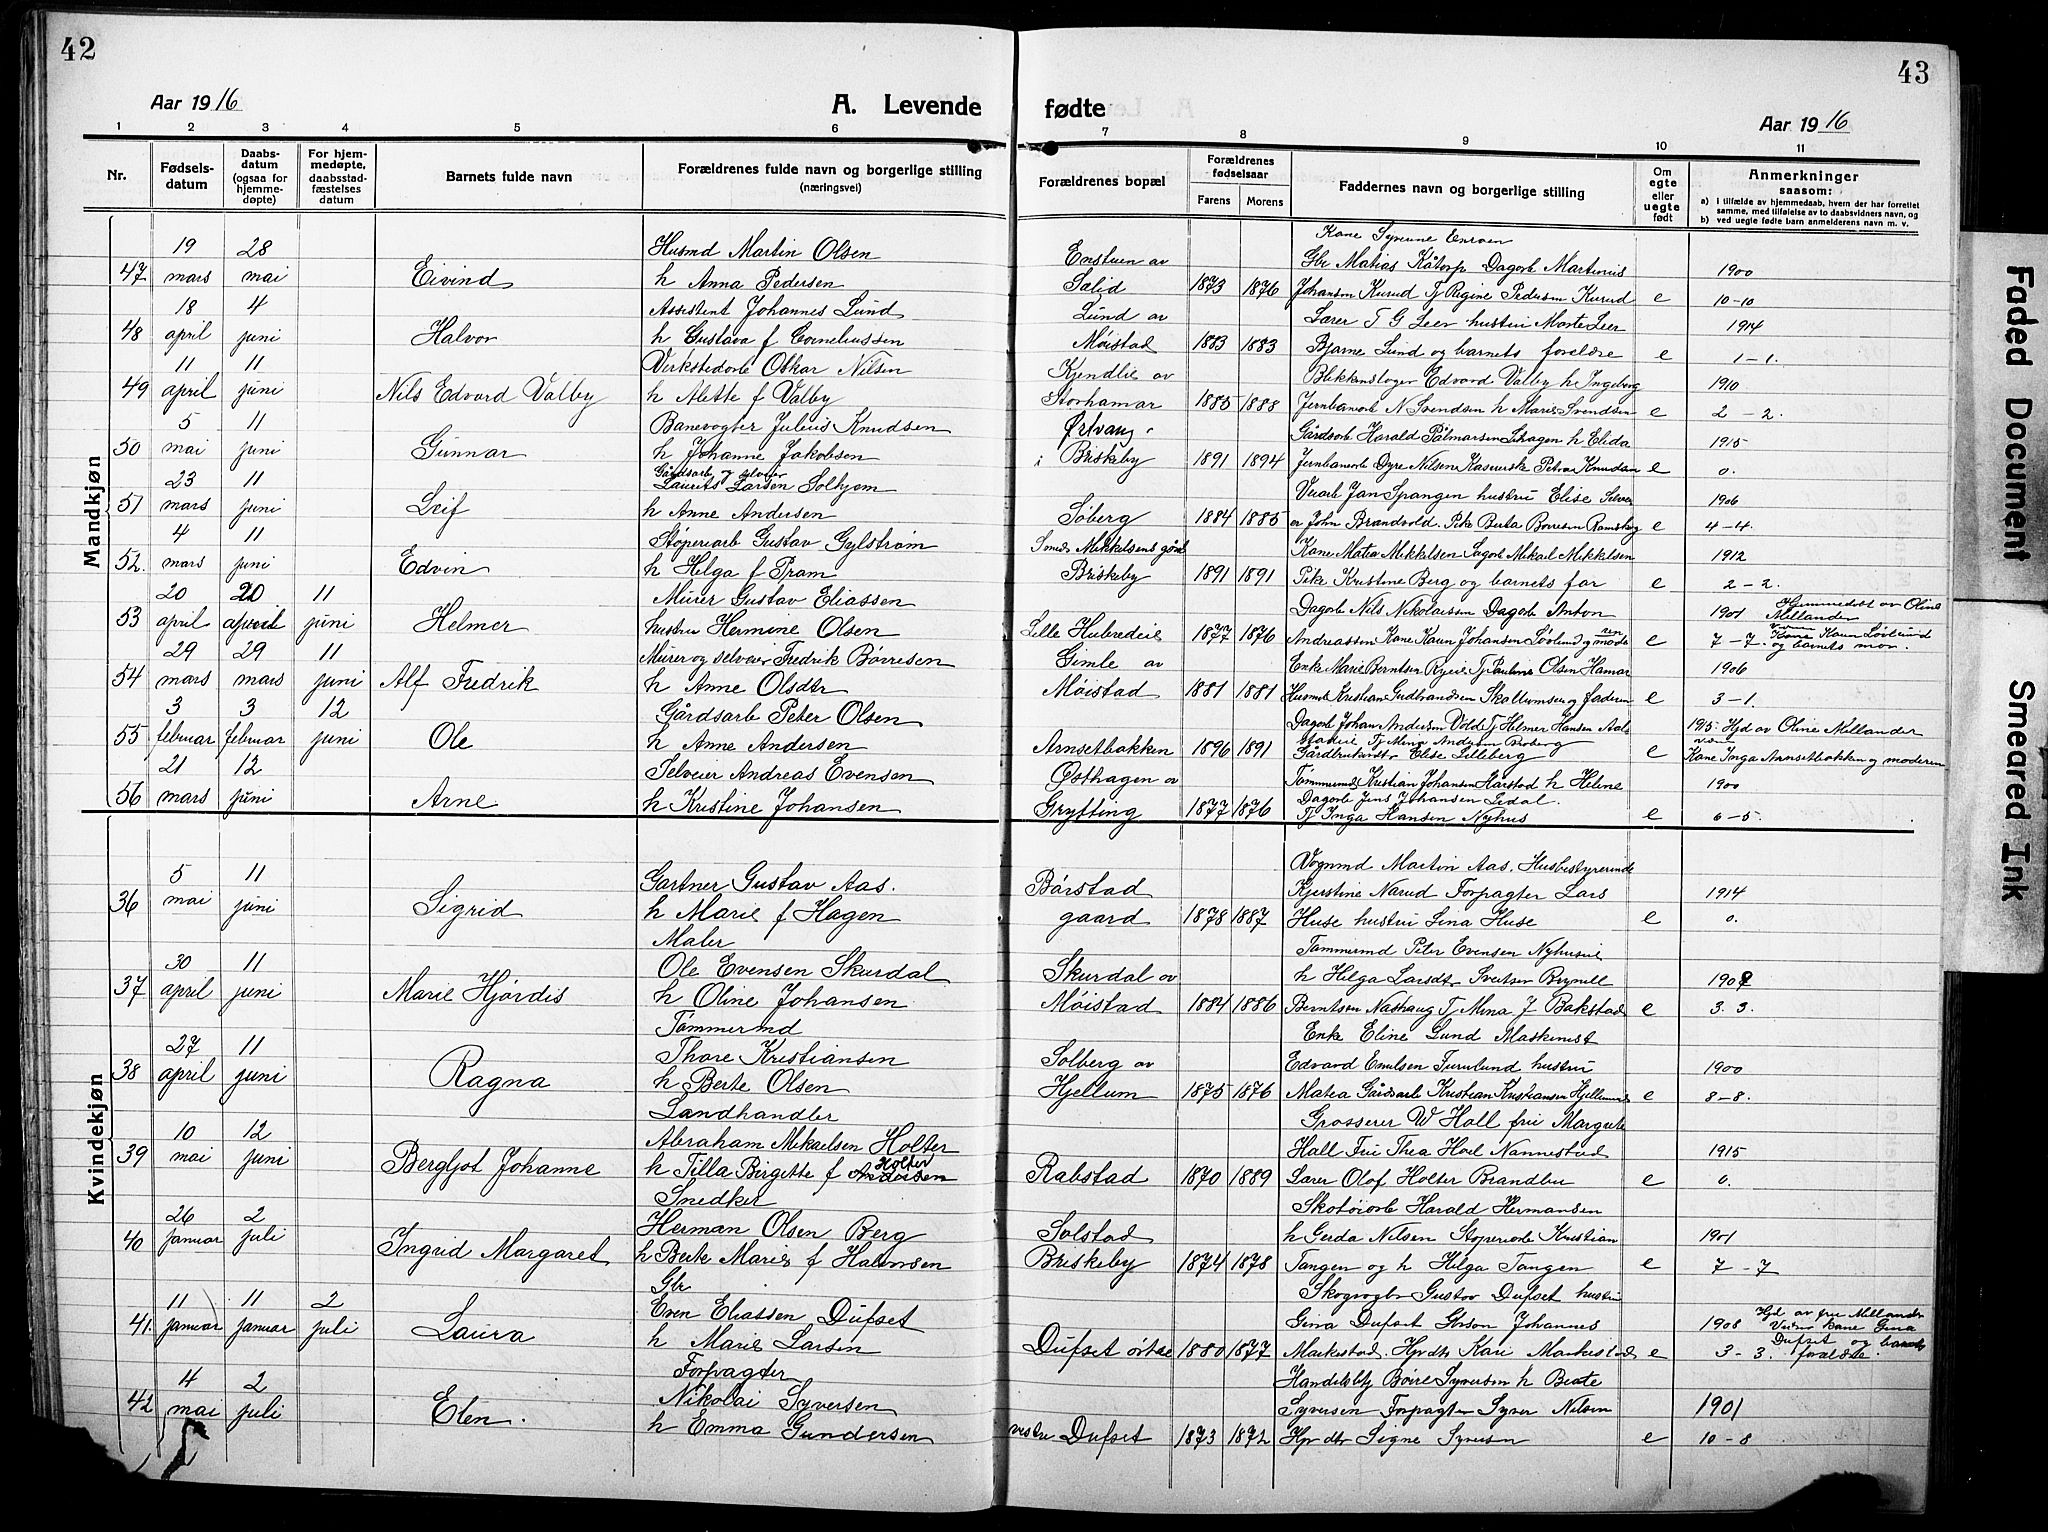 42
Aar 1916
A. Levende
1 2 3 4 5 6
Nr.
Fødsels-
datum
Daabs-
datum
(ogsaa for
hjemme-
døpte)
For hjem-
medøpte,
daabsstad-
fæstelses
datum
Barnets fulde navn
Forældrenes fulde navn og borgerlige stilling
(næringsvei)
Mandkjøn
19 28 Husmd Martin Olsen
47 mars mai Eivind h Anna Pedersen
18 4 Assistent Johannes Lund
48 april juni Halvor h Gustava f Corneliussen
11 11 Verkstedarb Oskar Nilsen
49 april juni Nils Edvard Valby h Alette f Valby
5 11 Banevogter Julius Knudsen
50 mai juni Gunnar h Johanne Jakobsen
23 11 Gårdsarb og selveier
Laurits Larsen Solhjem
51 mars juni Leif h Anne Andersen
4 11 Støperiarb Gustav Gylstrøm
52. mars juni Edvin h Helga f Pram
20 20 11 Murer Gustav Eliassen
53 april april juni Helmer hustru Hermine Olsen
29 29 11 Murer og selveier Fredrik Børresen
54 mars mars juni Alf Fredrik h Anne Olsdtr
3 3 12 Gårdsarb Peter Olsen
55 februar februar juni Ole h Anne Andersen
21 12 Selveier Andreas Evensen
56 mars juni Arne h Kristine Johansen
Kvindekjøn
5 11 Gartner Gustav Aas.
36 mai juni Sigrid h Marie f Hagen
Maler
30 11 Ole Evensen Skurdal
37 april juni Marie Hjørdis h Oline Johansen
Tømmermd
27 11 Thore Kristiansen
38 april juni Ragna h Berte Olsen
Landhandler
10 12 Abraham Mikaelsen Holter
39 mai juni Bergljot Johanne h Tilla Birgitte f Holter
Snedker
26 2 Herman Olsen Berg
40 januar juli Ingrid Margaret h Berte Marie f Halvorsen
Gbr
11 11 2 Even Eliassen Dufset
41. januar januar juli Laura h Marie Larsen
Forpagter
4 2 Nikolai Syversen
42 mai juli Elen. h Emma Gundersen
43
fødte
Aar 1916
7 8 9 10 11
Forældrenes bopæl
Forældrenes
fødselsaar
Farens Morens
Faddernes navn og borgerlige stilling
Om
egte
eller
uegte
født
Anmerkninger
saasom:
a) i tilfælde av hjemmedaab, hvem der har forrettet
samme, med tilføielse av to daabsvidners navn, og
b) ved uegte fødte barn anmelderens navn m. v.
Kane Syverine Enstuen
Enstuen av Gbr Matias Kåtorp Dagarb Martinius 1900
Sælid 1873 1876 Johansen Kurud Tj Regine Pedersen Kurud e 10-10
Lund av Lærer T G Leer hustru Marte Leer 1914
Møistad 1883 1883 Bjarne Lund og barnets forældre e 1-1.
Kjendlie av Blikkenslager Edvard Valby h Ingeborg 1910
Storhamar 1885 1888 Jernbanearb N Svendsen h Marie Svendsen e 2-2.
Østvang Gårdsarb Harald Pålmarsen h Elida 1915
i Briskeby 1891 1894 Jernbanearb Dyre Nilsen Kasererske Petra Knudsen e 0.
Veiarb Jan Spangen hustru Elise Selvei 1906
Søberg 1884 1885 er John Brandvold. Pike Berta Børresen Ramsberg e 4-4.
Smeds Mikkelsens gård Kane Matea Mikkelsen Sagarb Mikael Mikkelsen 1912
Briskeby 1891 1891 Pike Kristine Berg og barnets far e 2-2.
Dagarb Nils Nikolaisen Dagarb Anton 1901 Hjemmedøpt av Oline
Millander
Lille Hubredeie 1877 1876 Andreassen Kane Karen Johansen Løvlund og moderen e 7-7. Kane Karen Løvlund
og barnets mor.
Gimle av Enke Marie Berntsen Ryeie Tj Pauline Olsen Hamar 1906
Møistad 1881 1881 Husmds Kristiane Gudbrandsen Skallumsen og faderen e 3-1.
Dagarb Johan Andersen Volde Tj Helmer Hansen Aal- 1915. Hjd av Oline Millander
stadeie Tj Mina Andersen
Arnsetbakken 1896 1891 Gårdbrukerdtr Elise Lilleberg e Kane Inga Arnsetbakken og moderen
Østhagen av Tømmermd Kristian Johansen Harstad h Helene 1900
Dagarb Jens Johansen Lidal.
Gryfting 1877 1876 Tj Inga Hansen Nyhus e 6-5.
Vognmd Martin Aas. Husbestyrerinde
Børstad Kjerstine Narud Forpagter Lars 1914
gaard 1878 1887 Huse hustru Lina Huse e 0.
Tømmermd Peter Evensen Nyhuseie
Skurdal av h Helga Larsdtr Sveitser Brynell 1909
Møistad 1884 1886 Berntsen Nashaug Tj Mina J Bakstad e 3. 3.
Enke Eline Lund Maskinist
Solberg av Edvard Emilsen Furulund hustru 1900
Hjellum 1875 1876 Matea Gårdsarb Kristian Kristiansen Hjellum e 8-8.
Grosserer W Hall frue Margrete
Hall Frue Thea Hoel Nannestad 1915
Rabstad 1870 1889 Lærer Olof Holter Brandbu e 0.
Skotøiarb Harald Hermansen
Solstad h Gerda Nilsen Støperiarb Kristian 1901
Briskeby 1874 1878 Tangen og h Helga Tangen e 7-7
Skogvogter Gustav Dufset hustru
Gina Dufset Gbrsøn Johannes 1908 Hjd av frue Millander
Vidner kane Gina
Dufset østre 1880 1877 Markestad. Gbrdtr Kari Markestad e 3-3. Dufset og barnets
forældre.
Handelsbtj Børre Syversen h Beate
Syversen Forpagter Syver Nilsen 1901
vestre Dufset 1873 1872 Gbrdtr Signe Syversen e 10-8
Faded Document
Smeared Ink